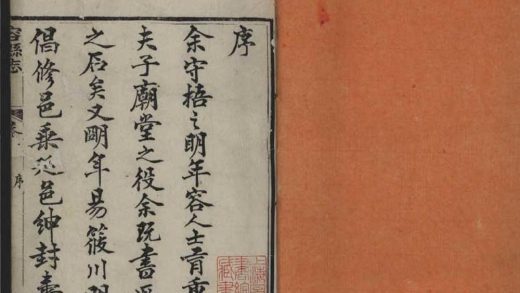 序
余守梧之明年容人士有重
夫子廟堂之役余既書
之后矣又明年易筱川
倡修邑乘延邑紳封
容縣志
卷
序